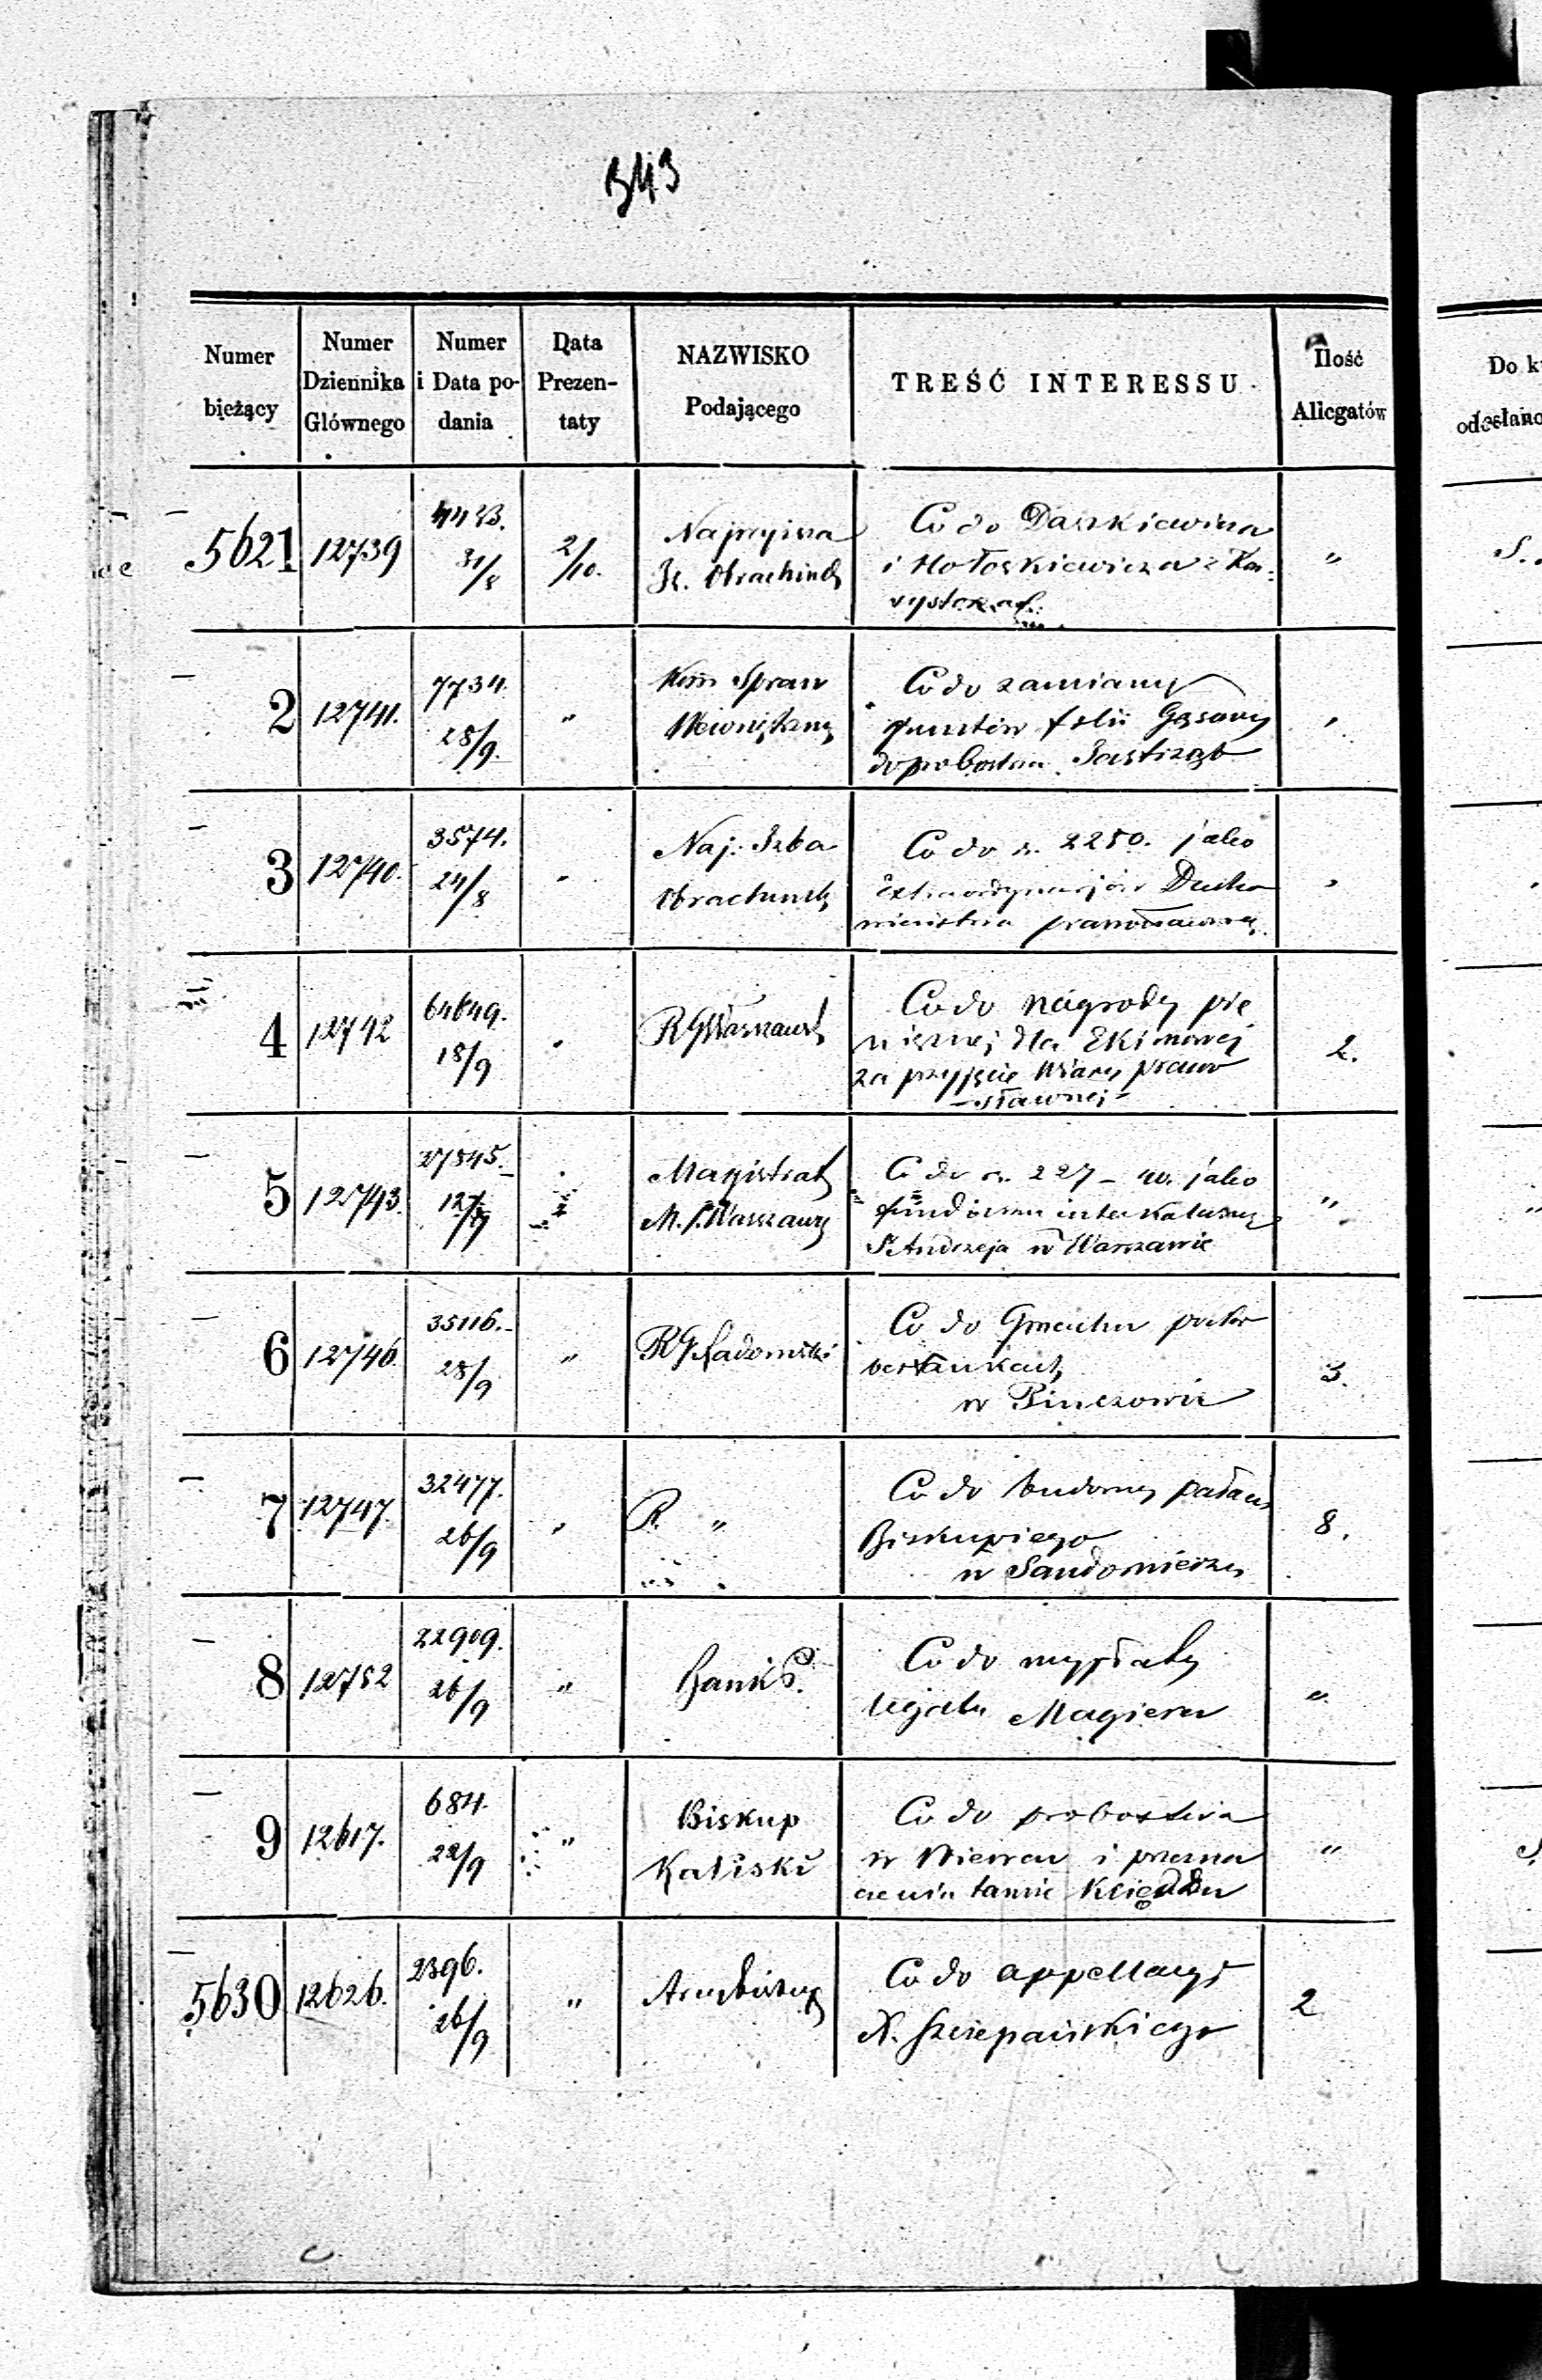 343
Numer bieżący | Numer Dziennika Głównego | Numer i Data podania | Data Prezentaty | NAZWISKO Podającego | TREŚĆ INTERESSU | Ilość Allegatów
Do k
odesłano
5621 12739 31/8 2/10. Co do Daszkiewicza
i "
2 12741. 7734. 28/9. " Kom Spraw
Co do zamiany
do probostwa Jastrząb
3 12740. 3574. 24/8 " Naj. Izba
Obrachunk
Co do 2250. jako
4 12742 64649. 18/9 " R G Warszawsk
Co do nagrody pie
niężnej dla Ekimowej
za przyjęcie Wiary praw
sławnej 2.
5 12743. 27545. Magistrat
M. S. Warszawy
Co do 227 jako
S. Andrzeja w Warszawie "
6 12746. 35116. 28/9 " R G Radomski
Co do Gmachu po
w Pinczowie 3.
7 12747. 32477. 26/9 " R. "
Co do budowy pałacu
Biskupiego
w Sandomierzu 8.
8 12752 22909. 26/9 " Bank P.
Co do wypłaty
legatu Magiera "
9 12617. 684. 22/9 " Biskup
Kaliski
Co do probostwa
w i przezna
czenia tamże Księdza "
5630 12626. 2396. 26/9 " Arcybiskup
Co do appellacyi
X. Szczepańskiego 2